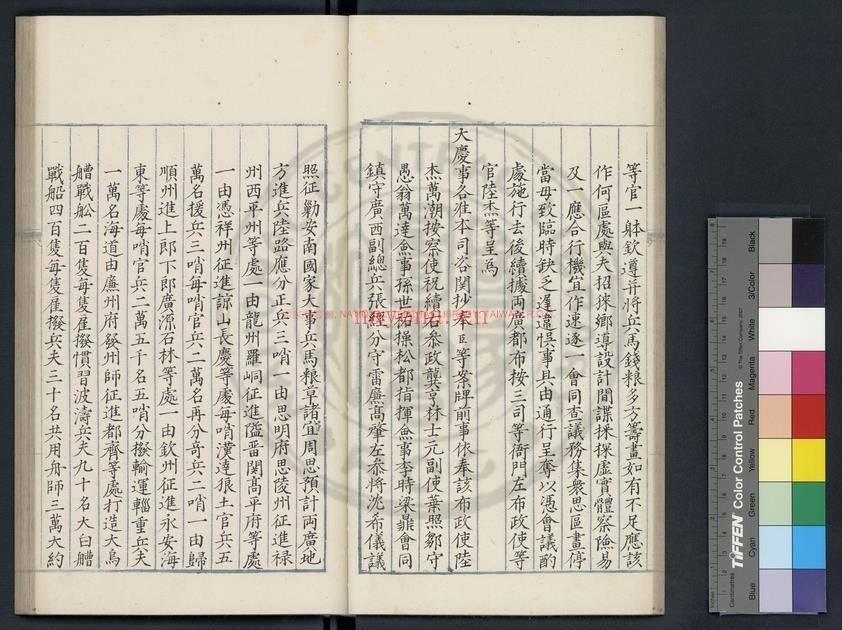 等官一躰欽遵并將兵馬錢粮多方籌畫如有不足應該
作何區處與夫招徠鄉導設計間諜採探虛實體察險易
及一應合行機宜作速逐一會同查議務集衆思區畫停
當毋致臨時缺乏遲違悞事具由通行呈奪以憑會議酌
處施行去後續據兩廣都布按三司等衙門左布政使等
官陸杰等呈爲
大慶事各准本司咨関抄奉臣等案牌前事依奉該布政使陸
杰萬潮按察使祝續右叅政龔亨林士元副使葉照鄒守
愚翁萬達僉事孫世祐操松都指揮僉事李時梁鼐會同
鎮守廣西副總兵張經分守雷廉高肇左叅將沈希儀議
照征勦安南國家大事兵馬粮草諸宜周思預計兩廣地
方進兵陸路應分正兵三哨一由思明府思陵州征進祿
州西平州等處一由龍州羅峒征進隘㽞関高平府等處
一由憑祥州征進諒山長慶等處每哨漢達狼土官兵五
萬名援兵三哨每哨官兵二萬名再分奇兵二哨一由歸
順州進上郎下郎廣源石林等處一由欽州征進永安海
東等處每哨官兵二萬五千名五哨分撥輸運輜重兵夫
一萬名海道由廉州府發舟師征進都齊等處打造大烏
艚戰舡二百隻每隻雇撥慣習波濤兵夫九十名大白艚
戰船四百隻每隻雇撥兵夫三十名共用舟師三萬大約
TIFFEN Color Control Patches
© The Tiffen Company, 2007
Blue
Cyan
Green
Yellow
Red
Magenta
White
3/Color
Black
Inches
Centimetres